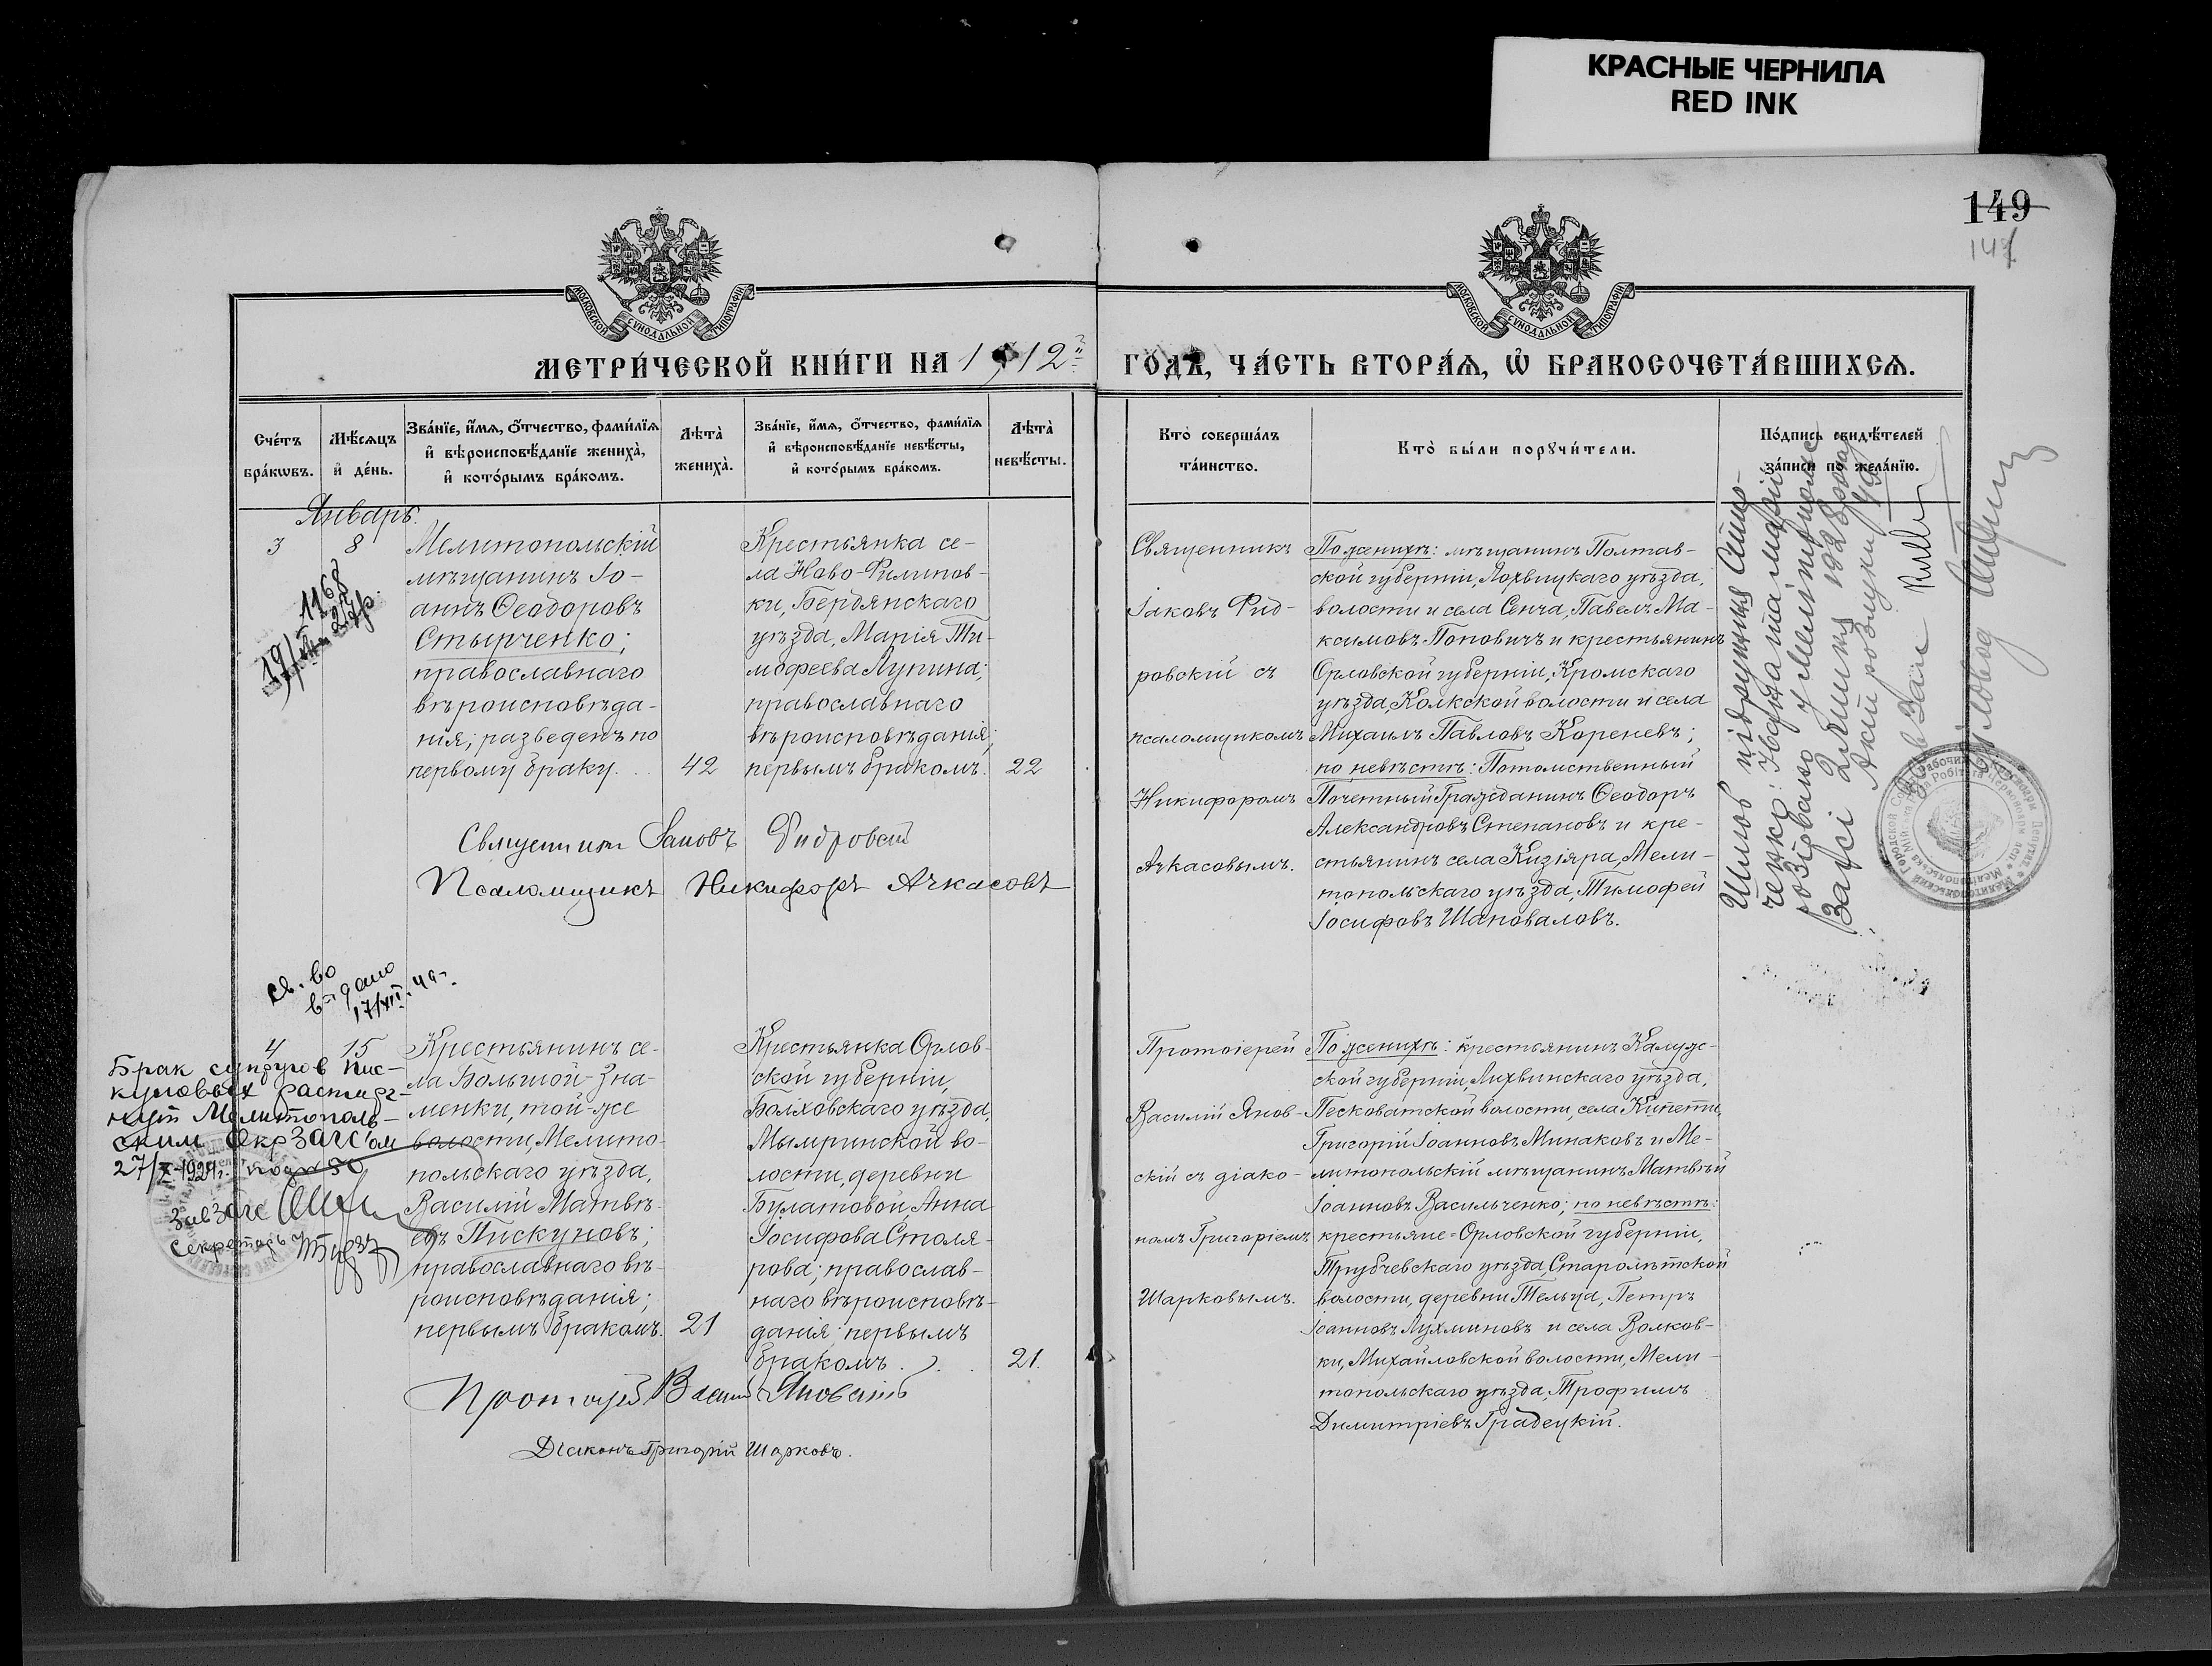 КРАСНЫЕ ЧЕРНИЛА
RED INK
149
147
МОСКОВСКОЙ СѴНОДАЛЬНОЙ ТИПОГРАФІИ
МОСКОВСКОЙ СѴНОДАЛЬНОЙ ТИПОГРАФІИ
МЕТРИ́ЧЕСКОЙ КНИ́ГИ НА 1912й
ГО́ДЪ, ЧА́СТЬ ВТОРА́Ѧ, Ѽ БРАКОСОЧЕТА́ВШИХСѦ.
Счéтъ бра́кѡвъ.
Мѣ́сѧцъ и҆ де́нь.
Зва́нїе, и҆́мѧ, ѻ҆́тчество, фами́лїѧ и҆ вѣроисповѣ́данїе жениха̀, и҆ кото́рымъ бра́комъ.
Лѣта̀ жениха̀.
Зва́нїе, и҆́мѧ, ѻ҆́тчество, фами́лїѧ и҆ вѣроисповѣ́данїе невѣ́сты, и҆ кото́рымъ бра́комъ.
Лѣта̀ невѣ́сты.
Кто̀ соверша́лъ та́инство.
Кто̀ бы́ли порꙋчи́тели.
По́дпись свидѣ́телей за́писи по жела́нїю.
Январь.
3
8
Мелитопольскій
мѣщанинъ Іо-
аннъ Ѳеодоровъ
Стырченко;
православнаго
вѣроисповѣда-
нія; разведенъ по
первому браку.
42
Крестьянка се-
ла Ново-Филипов-
ки, Бердянскаго
уѣзда, Марія Ти-
мофеева Лупина;
православнаго
вѣроисповѣданія;
первымъ бракомъ.
22
Священникъ
Іаковъ Фид-
ровскій съ
псаломщикомъ
Никифоромъ
Ачкасовымъ.
По женихѣ: мѣщанинъ Полтав-
ской губерніи, Лохвицкаго уѣзда,
волости и села Сенча, Павелъ Ма-
ксимовъ Поповичъ и крестьянинъ
Орловской губерніи, Кромскаго
уѣзда, Колкской волости и села
Михаилъ Павловъ Кореневъ;
по невѣстѣ: Потомственный
Почетный Гражданинъ Ѳеодоръ
Александровъ Степановъ и кре-
стьянинъ села Кизіяра, Мели-
топольскаго уѣзда, Тимофей
Іосифовъ Шаповаловъ.
Священникъ Іаковъ Фидровскій
Псаломщикъ Никифоръ Ачкасовъ
1168
Шлюб підружжя Стир-
ченко: Ивана та Марії
розірвано у Мелітополь
Загсі 1928 року
Акт розлуки
Зав Загс
Діловод
св. во
выдано
17/XII.44 г.
4
15
Крестьянинъ се-
ла Большой-Зна-
менки, той-же
волости, Мелито-
польскаго уѣзда,
Василій Матвѣ-
евъ Пискуновъ;
православнаго вѣ-
роисповѣданія;
первымъ бракомъ.
21
Крестьянка Орлов-
ской губерніи,
Болховскаго уѣзда,
Мымринской во-
лости, деревни
Булатовой, Анна
Іосифова Столя-
рова; православ-
наго вѣроисповѣ-
данія; первымъ
бракомъ.
21.
Протоіерей
Василій Янов-
скій съ діако-
номъ Григоріемъ
Шарковымъ.
По женихѣ: крестьянинъ Калуж-
ской губерніи, Лихвинскаго уѣзда,
Песковатской волости, села Кипетти,
Григорій Іоанновъ Минаковъ и Ме-
литопольскій мѣщанинъ Матвѣй
Іоанновъ Васильченко; по невѣстѣ:
крестьяне-Орловской губерніи,
Трубчевскаго уѣзда, Старо
волости, деревни Тельца, Петръ
Іоанновъ Лухминовъ и села Волков-
ки, Михайловской волости, Мели-
топольскаго уѣзда, Трофимъ
Димитріевъ Градецкій.
Брак супругов Пис-
куновых расторг-
нут Мелитополь-
ским ОкрЗАГС'ом
27/X-1924г.
ЗавЗагс
Секретарь
Протоіерей Василій Яновскій
Діаконъ Григорій Шарковъ.